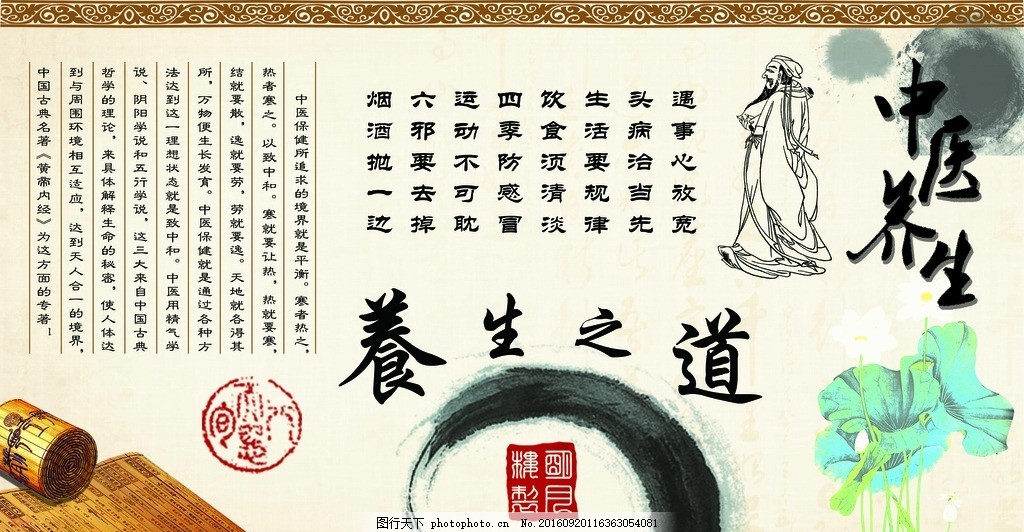 中医养生
遇事心放宽
头病治当先
生活要规律
饮食须清淡
四季防感冒
运动不可耽
六邪要去掉
烟酒抛一边
中医保健所追求的境界就是平衡。寒者热之，
热者寒之。以致中和。寒就要让热，热就要寒，
结就要散，逸就要劳，劳就要逸。天地就各得其
所，万物便生长发育。中医保健就是通过各种方
法达到这一理想状态就是致中和。中医用精气学
说、阴阳学说和五行学说，这三大来自中国古典
哲学的理论，来具体解释生命的秘密，使人体达
到与周围环境相互适应，达到天人合一的境界，
中国古典名著《黄帝内经》为这方面的专著！
養生之道
明月
樓製
图行天下 www.photophoto.cn No.20160920116363054081